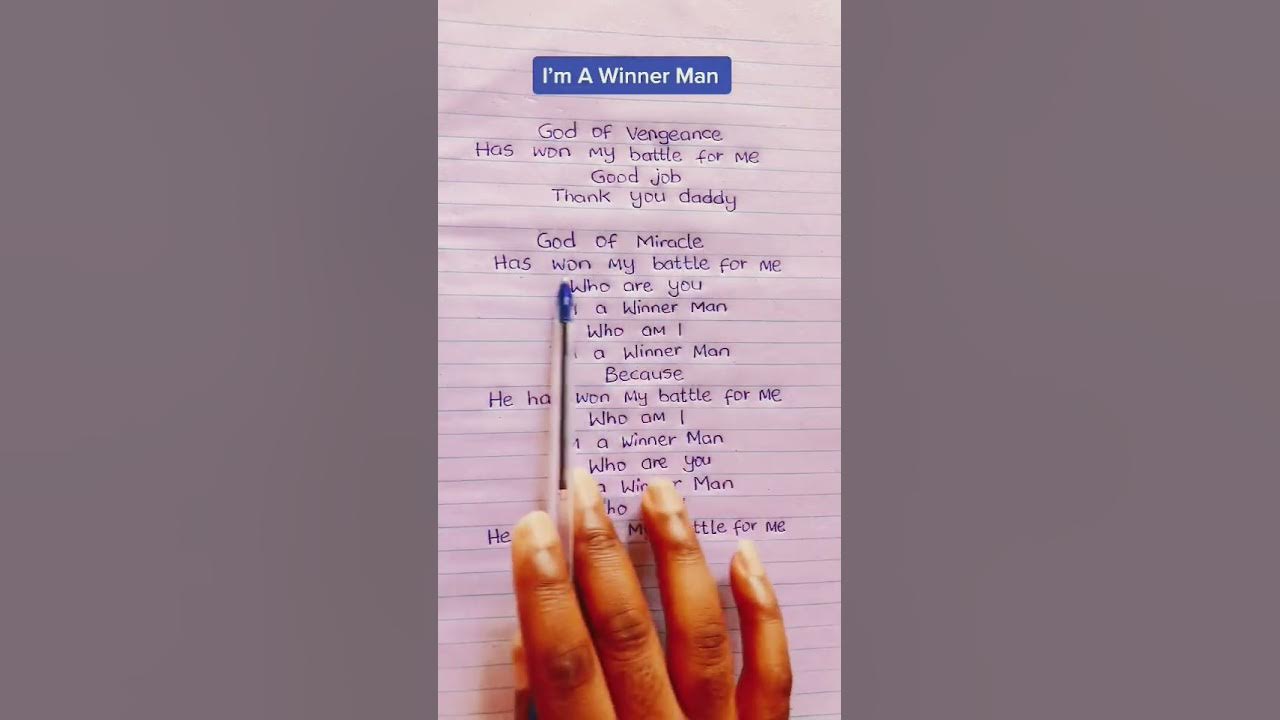 I'm A Winner Man
God of Vengeance
Has won My battle for Me
Good job
Thank you daddy
God of Miracle
Has won My battle for Me
Who are you
a Winner Man
Who am I
a Winner Man
Because
He won My battle for Me
Who am I
a Winner Man
Who are you
Man
He for Me